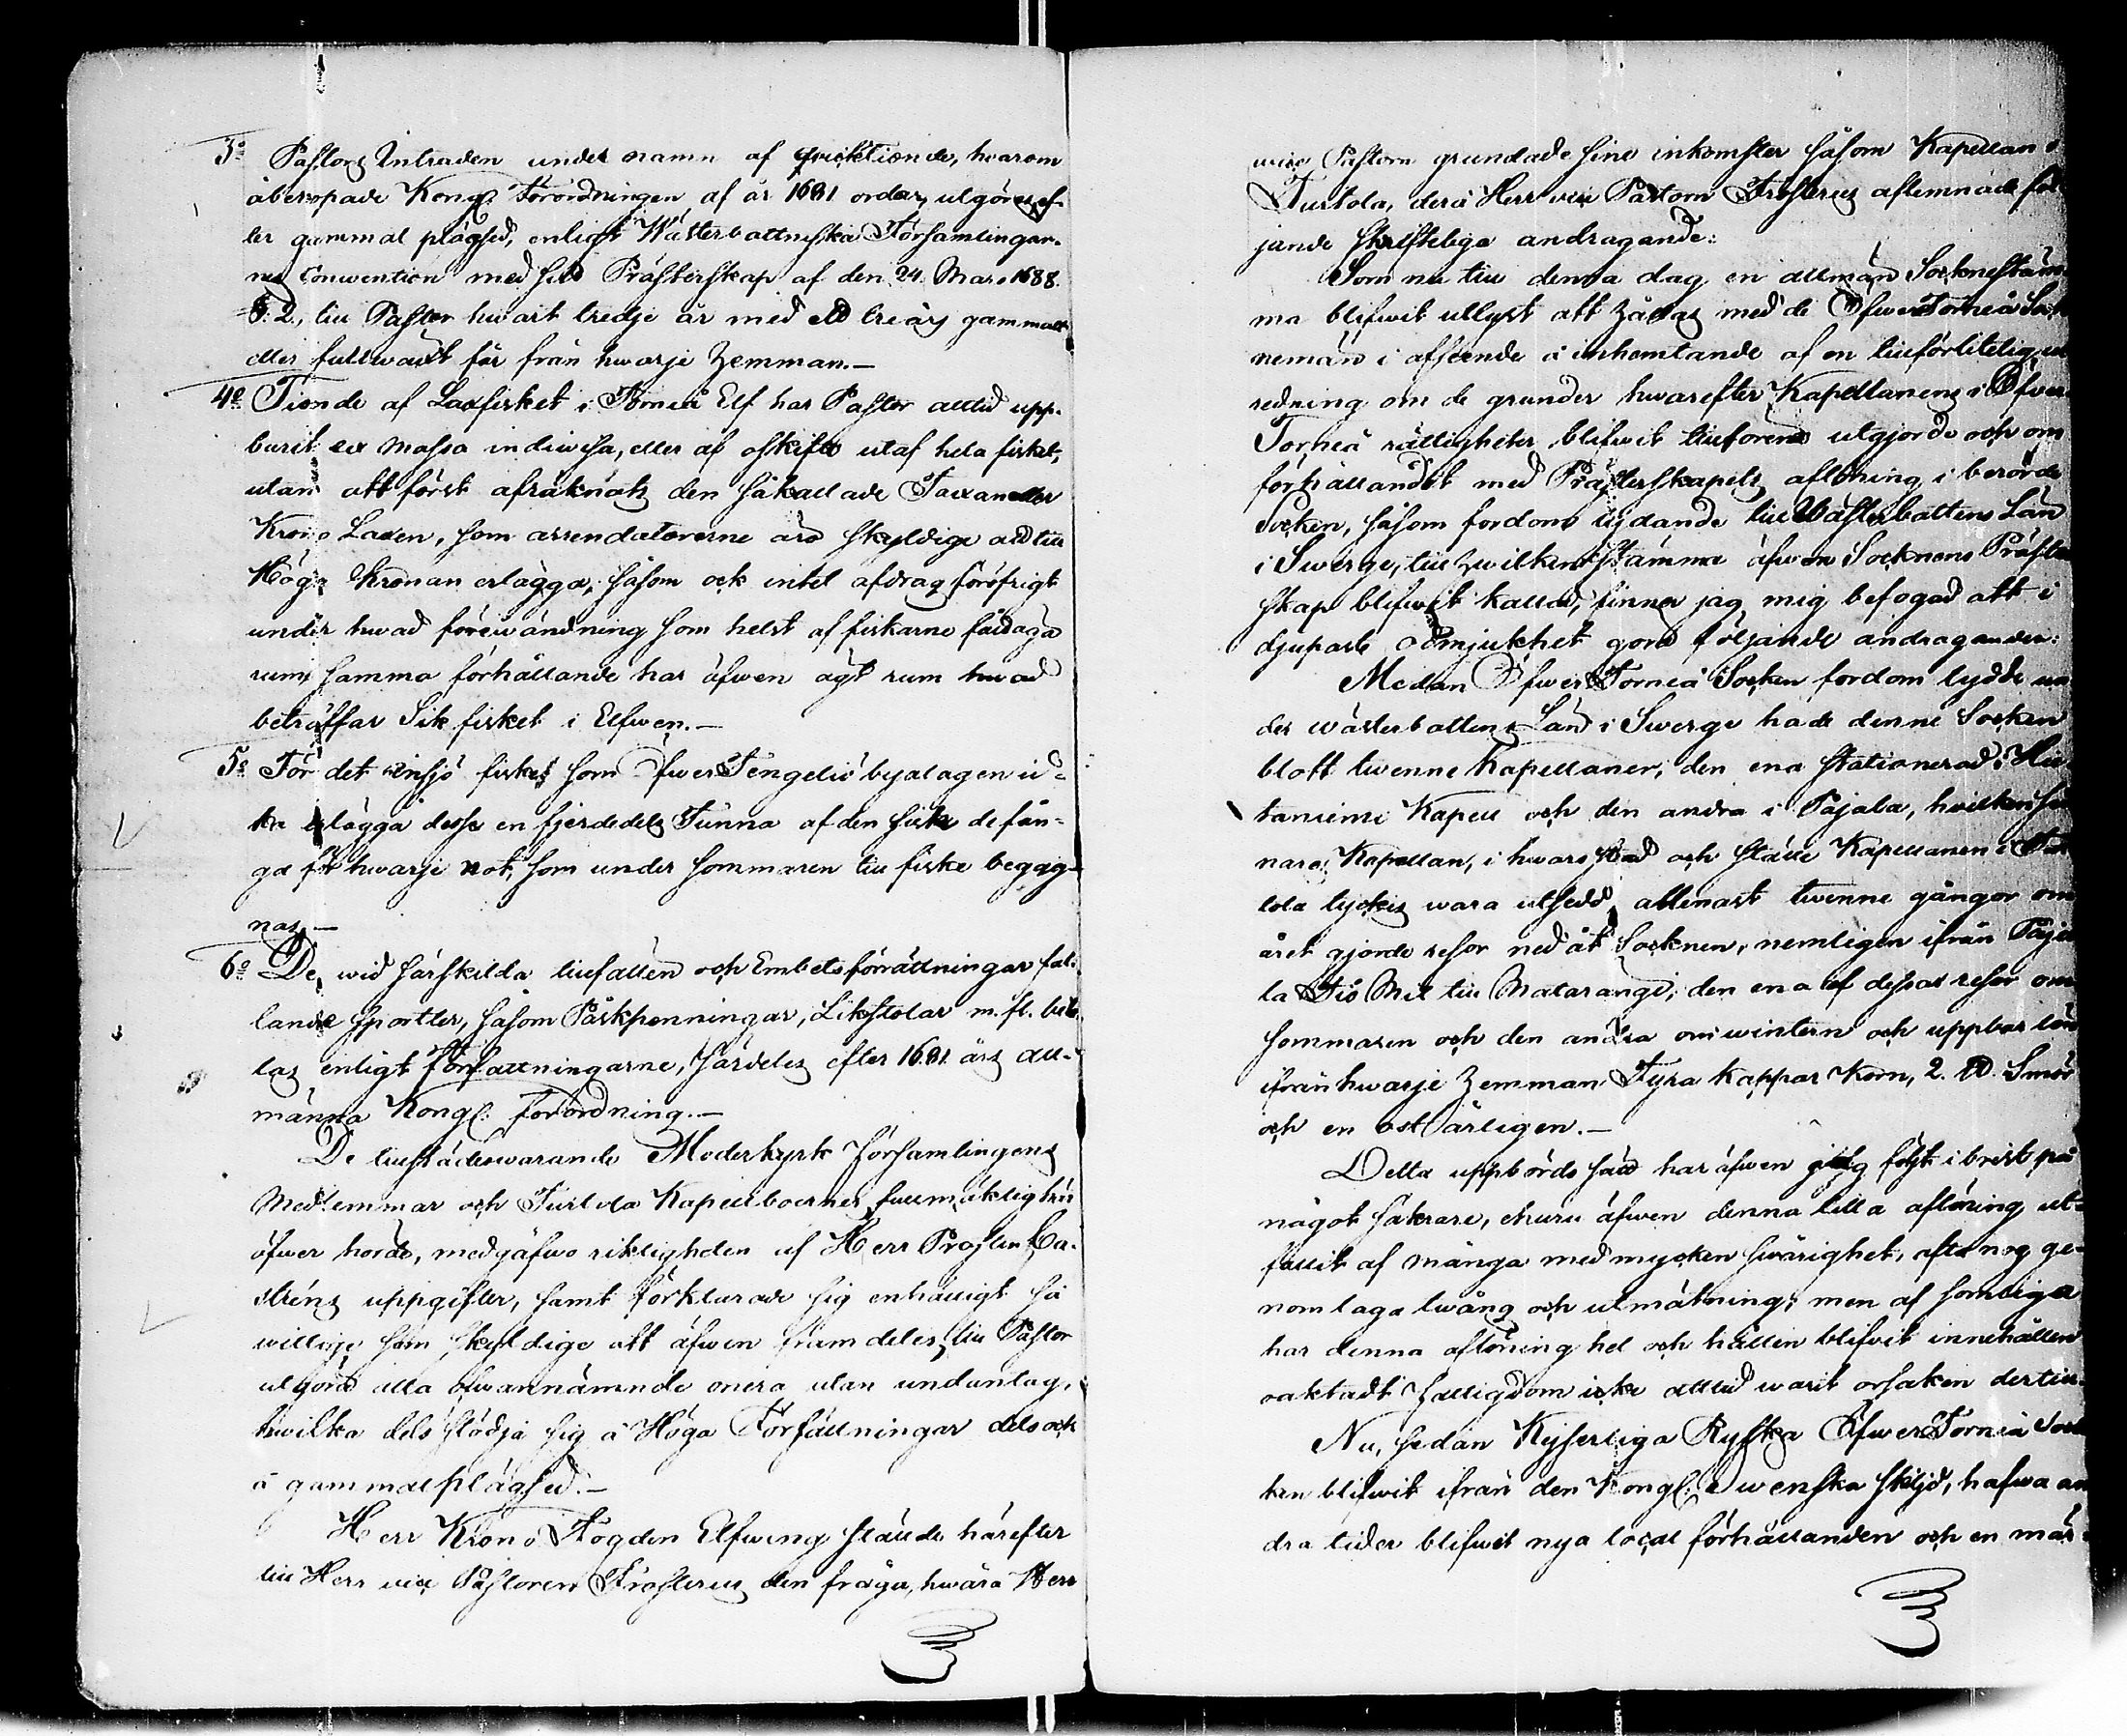 3º Pastors Intraden under namn af qvicktionde, hvarom
åberopade Kongl. Förordningen af år 1681 ordar, utgöres ef-
ter gammal plägsed, enligt Wästerbottniska Församlingar-
nes Convention med sitt Prästerskap af den 24. Mars 1688.
§. 2., till Pastor hwart tredje år med ett treårs gammalt
eller fullwäxt får från hwarje Hemman.—
4º Tionde af Laxfisket i Torneå Elf har Pastor alltid upp-
burit ex massa indivisa, eller af oskifto utaf hela fisket,
utan att först afräknats den så kallade Taxan eller
Krono Laxen, som arrendatorerne äro skyldige att till
Höga Kronan erlägga, såsom ock intet afdrag föröfrigt
under hwad förewändning som helst af fiskarne får äga
rum; samma förhållande har äfwen ägt rum hwad
beträffar Sik fisket i Elfwen.—
5º För det insjö fiske, som Öfwer Tengeliö byalagen id-
ka erlägga desse en fjerdedels Tunna af den fisk de fån-
ga för hwarje not, som under sommaren till fiske begag-
nas.—
6º De wid särskilda tillfällen och Embetsförrättningar fal-
lande sportler, såsom Påskpenningar, Likstolar m. fl. beta-
las enligt Författningarne, särdeles efter 1681 års all-
männa Kongl: Förordning.—
De tillstädeswarande Moderkyrk Församlingens
Medlemmar och Turtola Kapellboernes fullmäktig här-
öfwer hörde, medgåfwo riktigheten af Herr Prosten Ca-
stréns uppgifter, samt förklarade sig enhälligt så
willige som skyldige att äfwen framdeles till Pastor
utgöra alla ofwannämnde onera utan undantag,
hwilka dels stödja sig å Höga Författningar dels ock
å gammal plägsed.—
Herr Krono Fogden Elfwing ställde härefter
till Herr vice Pastoren Frosterus den fråga, hwarå Herr
vice Pastorn grundade sine inkomster såsom Kapellan i
Turtola, derå Herr vice Pastorn Frosterus aflemnade föl-
jande skriftelige andragande:
Som nu till denna dag en allmän Sockneställm-
ma blifwit utlyst att hållas med de Öfwer Torneå Sock-
nemän i afseende å inhemtande af en tillförlitelig ut-
redning om de grunder hwarefter Kapellanens i Öfwer
Torneå rättigheter blifwit tillförene utgjorde och om
förhållandet med Prästerskapets aflöning i berörde
Socken, såsom fordom lydande till Wästerbottens Län
i Swerge, till hwilken stämma äfwen Socknens Präster-
skap blifwit kallad, finner jag mig befogad att i
djupaste ödmjukhet göra följande andraganden:
Medan Öfwer Torneå Socken fordom lydde un-
der Wästerbottens Län i Swerge hade denne Socken
blott twenne Kapellaner; den ena stationerad i Hie-
taniemi Kapell och den andra i Pajala, hwilken se-
nare Kapellan, i hwars stad och ställe Kapellanen i Tur-
tola lyckes wara utsedd, allenast twenne gångor om
året gjorde resor nedåt Socknen, nemligen ifrån Paja-
la Tio Mil till Matarängi; den ena af dessa resor om
sommaren och den andra om wintern och uppbar lön
ifrån hwarje Hemman Fyra Kappar Korn, 2. ℔. Smör
och en ost årligen.—
Detta uppbördssätt har äfwen jag följt i brist på
något säkrare, ehuru äfwen denna lilla aflöning ut-
fallit af många med mycken swårighet, ofta nog ge-
nom laga twång och utmätning; men af somliga
har denna aflöning hel och hållen blifwit innehållen
oaktadt fattigdom icke alltid warit orsaken dertill.
Nu, sedan Kejserliga Ryska Öfwer Torneå Sock-
ken blifwit ifrån den Kongl. Swenska skiljd, hafwa an-
dra tider blifwit nya local förhållanden och en mär-